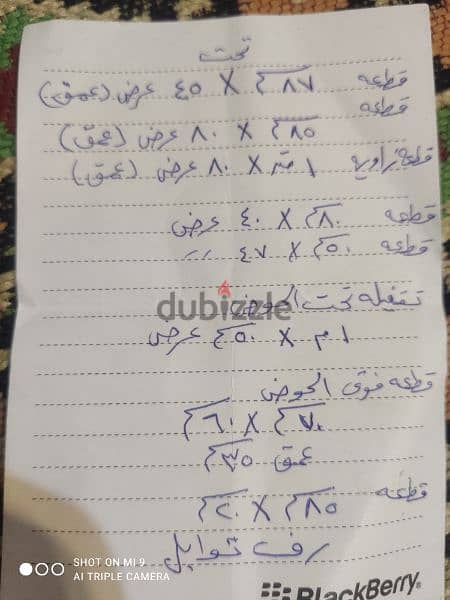 تحت
قطعه ٨٧سم X ٤٥ عرض (عمق)
قطعه
٨٥سم X ٨٠ عرض (عمق)
قطعة زاوية ١ متر X ٨٠ عرض (عمق)
قطعه ٨٠سم X ٤٠ عرض
قطعه ٥٠سم X ٤٧ ״
تقفيله تحت الحوض
١ م X ٥٠سم عرض
قطعه فوق الحوض
٧٠سم X ٦٠سم
عمق ٣٥سم
قطعه ٨٥سم X ٢٠سم
رف توابل
dubizzle
SHOT ON MI 9
AI TRIPLE CAMERA
BlackBerry